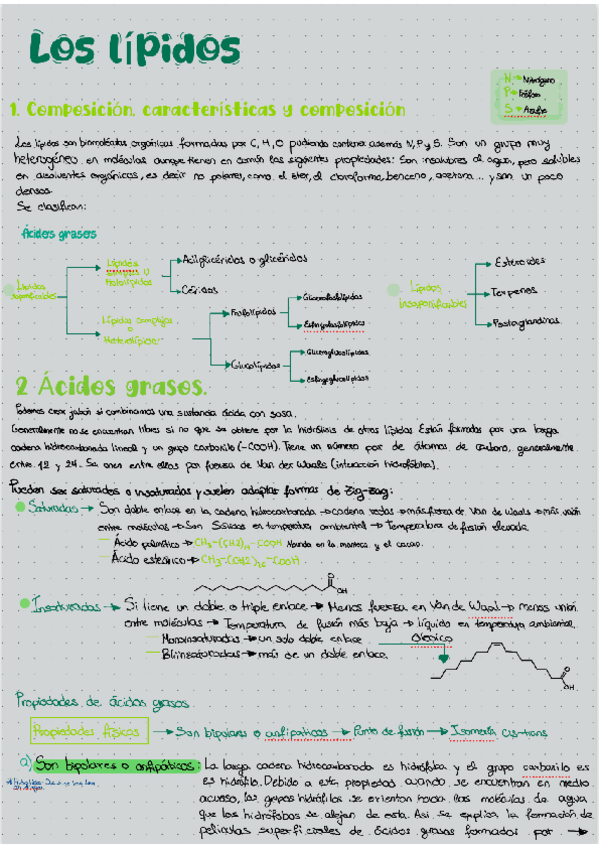 Los lípidos
N → Nitrógeno
P → Fósforo
S → Azufre
1. Composición, características y composición
Los lípidos son biomoléculas orgánicas formadas por C, H, O pudiendo contener además N, P y S. Son un grupo muy
heterogéneo en moléculas aunque tienen en común las siguientes propiedades: Son insolubles al agua, pero solubles
en disolventes orgánicos, es decir no polares, como el éter, el cloroformo, benceno, acetona... y son un poco
densos.
Se clasifican:
Ácidos grasos
Lípidos saponificables
Lípidos simples u hololípidos
Acilglicéridos o glicéridos
Céridos
Lípidos complejos o Heterolípidos
Fosfolípidos
Glicerofosfolípidos
Esfingofosfolípidos
Glucolípidos
Gliceroglucolípidos
Esfingoglucolípidos
Lípidos insaponificables
Esteroides
Terpenos
Prostaglandinas
2 Ácidos grasos.
Podemos crear jabón si combinamos una sustancia ácida con sosa.
Generalmente no se encuentran libres si no que se obtiene por la hidrólisis de otros lípidos Están formados por una larga
cadena hidrocarbonada lineal y un grupo carboxilo (-COOH). Tiene un número par de átomos de carbono, generalmente
entre 12 y 24. Se unen entre ellos por fuerza de Van der Waals (interacción hidrofóbica).
Pueden ser saturados o insaturados y suelen adoptar formas de Zig-zag:
Saturados → Son doble enlace en la cadena hidrocarbonada → cadena rectas → más fuerza de Van de Waals → más unión
entre moléculas → Son Sólidas en temperatura ambiental → Temperatura de fusión elevada
Ácido palmítico → CH3-(CH2)14-COOH Abunda en la manteca y el cacao.
Ácido esteárico → CH3-(CH2)16-COOH
O
OH
Insaturados → Si tiene un doble o triple enlace → Menos fuerza en Van de Waal → menos unión
entre moléculas → Temperatura de fusión más baja → líquido en temperatura ambiental.
Monoinsaturados → un solo doble enlace
Oleico
Biinsaturados → más de un doble enlace.
O
OH
Propiedades de ácidos grasos
Propiedades físicas → Son bipolares o anfipáticos → Punto de fusión → Isomería cis-trans
a) Son bipolares o anfipáticos: La larga cadena hidrocarbonada es hidrófoba y el grupo carboxilo es
es hidrófilo. Debido a esta propiedad cuando se encuentran en medio
acuoso, los grupos hidrófilos se orientan hacia las moléculas de agua
que los hidrófobos se alejan de esta. Así se explica la formación de
películas superficiales de ácidos grasos formados por →